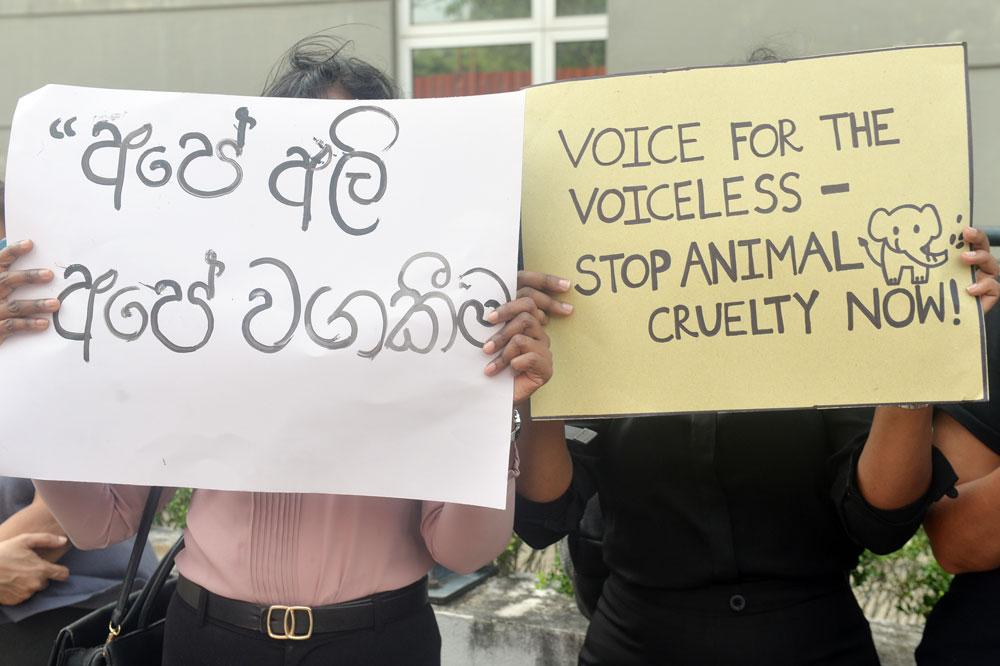 “අපේ අලි
අපේ වගකීම
VOICE FOR THE
VOICELESS –
STOP ANIMAL
CRUELTY NOW!